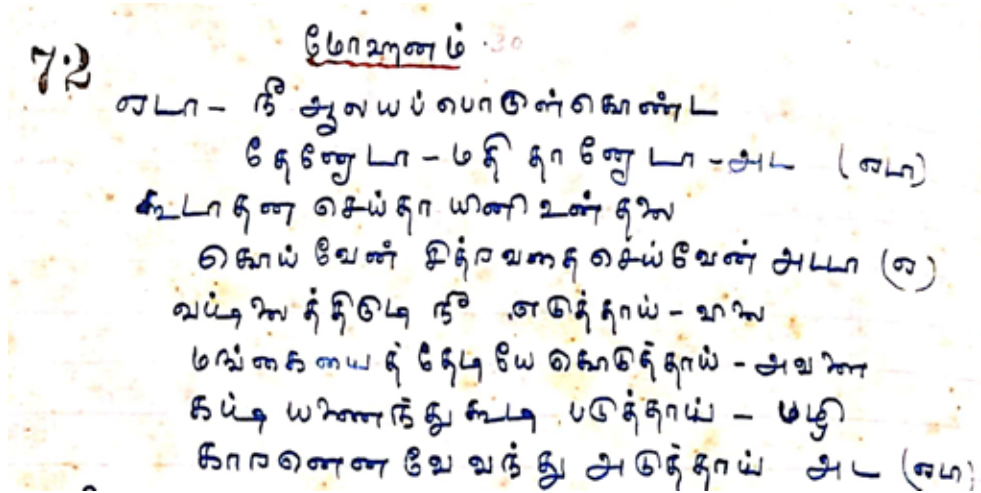 மோஹனம் 30
72
எடா - நீ ஆலயப் பொருள்கொண்ட
தேனேடா - மதி தானேடா - அட (எடா)
கூடாதன செய்தாயினி உன் தலை
கொய்வேன் சித்ரவதை செய்வேன் அடா (எ)
வட்டிலைத்திருடி நீ எடுத்தாய் - வாலை
மங்கையைத் தேடியே கொடுத்தாய் - அவளை
கட்டி யணைந்து கூடி படுத்தாய் - பழி
காரனெனவே வந்து அடுத்தாய் அட (எடா)